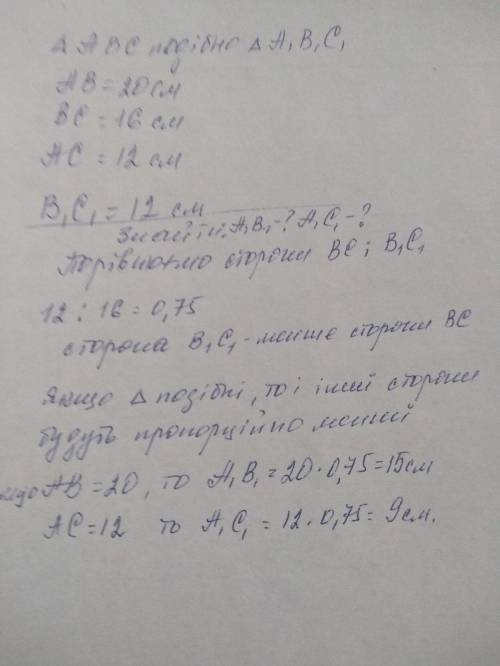 Δ ABC подібно Δ A₁B₁C₁
AB = 20 см
BC = 16 см
AC = 12 см
B₁C₁ = 12 см
Знайти: A₁B₁ - ? A₁C₁ - ?
Порівняємо сторони BC і B₁C₁
12 : 16 = 0,75
сторона B₁C₁ - менше сторони BC
Якщо Δ подібні, то і інші сторони
будуть пропорційно менші
AB = 20, то A₁B₁ = 20 · 0,75 = 15 см
AC = 12 то A₁C₁ = 12 · 0,75 = 9 см.